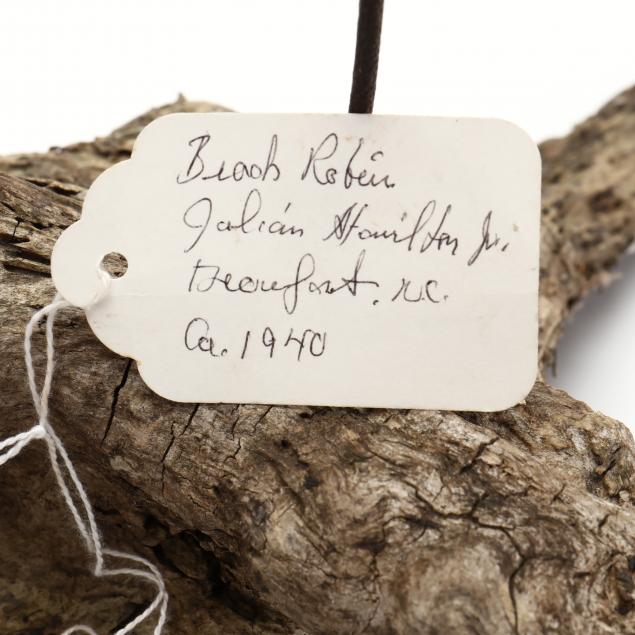 Beach Robin
Julian Hamilton Jr.
Beaufort, N.C.
Ca. 1940